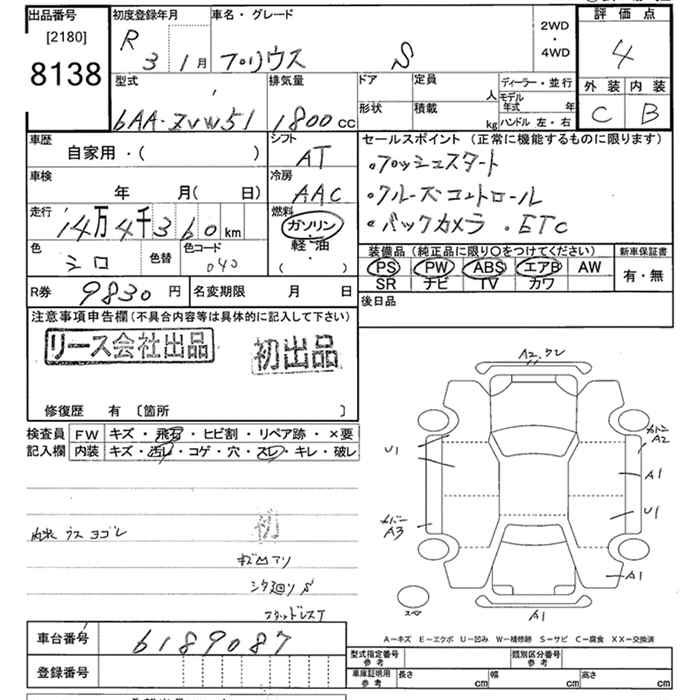 出品番号
[2180]
8138
初度登録年月
R 3 1月
車名・グレード
プリウス S
2WD
・
4WD
評価点
4
外装 内装
C B
型式
6AA-ZVW51
排気量
1800 cc
ドア
形状
定員 人
積載 kg
ディーラー・並行
モデル年式 年
ハンドル 左・右
車歴
自家用・( )
シフト
AT
車検
年 月( 日)
冷房
AAC
走行
14万4千360 km
燃料
ガソリン・
軽・油
( )
色
シロ
色替
色コード
040
セールスポイント (正常に機能するものに限ります)
・プッシュスタート
・クルーズコントロール
・バックカメラ ・ETC
装備品(純正品に限り○をつけてください)
PS PW ABS エアB AW
SR ナビ TV カワ
新車保証書
有・無
R券 9830 円
名変期限 月 日
後日品
注意事項申告欄(不具合内容等は具体的に記入して下さい)
リース会社出品
初出品
修復歴 有 〔箇所 〕
検査員
記入欄
FW キズ・飛石・ヒビ割・リペア跡・×要
内装 キズ・汚レ・コゲ・穴・スレ・キレ・破レ
内装 ウス ヨゴレ
初
キズ凹アリ
A2.ワレ
U1
A3
A2
A1
U1
A1
A1
A−キズ E−エクボ U−凹み W−補修跡 S−サビ C−腐食 XX−交換済
車台番号
6189087
登録番号
型式指定番号
参考
類別区分番号
参考
車庫証明用
参考
長さ cm
幅 cm
高さ cm